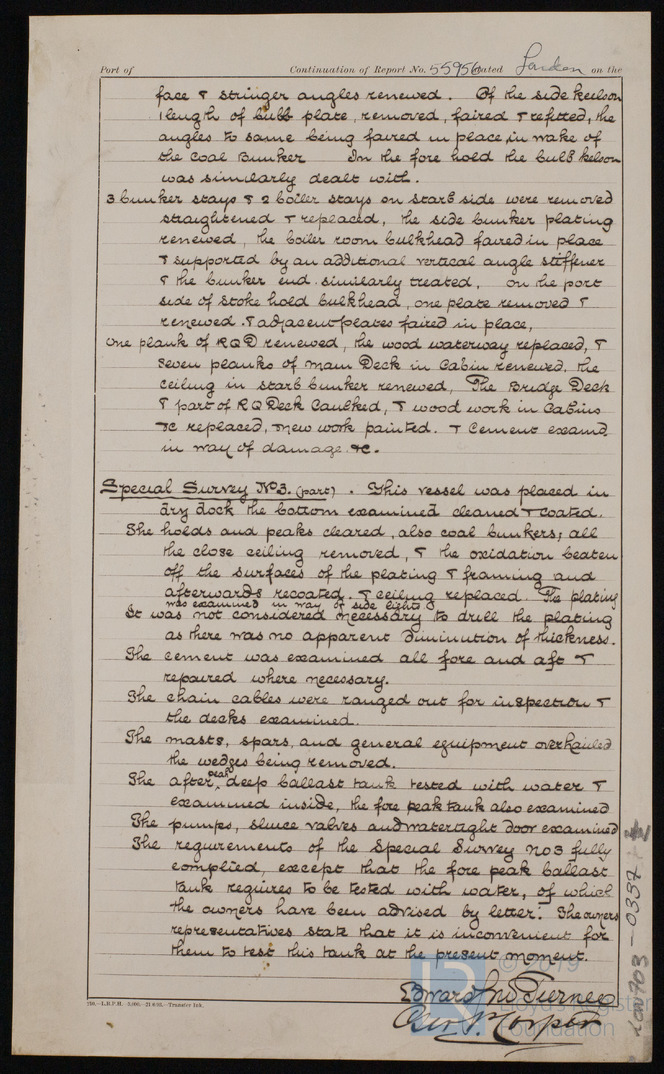 Port of Continuation of Report No. 55956 dated London on the
face & stringer angles renewed. Of the side keelson
1 length of bulb plate, removed, faired & refitted, the
angles to same being faired in place, in wake of
the Coal Bunker In the fore hold the bulb kelson
was similarly dealt with.
3 bunker stays & 2 boiler stays on starb side were removed
straightened & replaced, the side bunker plating
renewed, the boiler room bulkhead faired in place
& supported by an additional vertical angle stiffener
& the bunker end similarly treated, on the port
side of stoke hold bulkhead, one plate removed &
renewed & adjacent plates faired in place,
one plank of RQD renewed, the wood waterway replaced, &
seven planks of main Deck in Cabin renewed, the
ceiling in starb bunker renewed, The Bridge Deck
& part of RQ Deck Caulked, & wood work in Cabins
&c replaced, new work painted. & Cement examd
in way of damage &c.
Special Survey No 3. (part). This vessel was placed in
dry dock the bottom examined cleaned & coated.
The holds and peaks cleared, also coal bunkers; all
the close ceiling removed, & the oxidation beaten
off the surfaces of the plating & framing and
afterwards recoated. & ceiling replaced. The plating
was examined in way of side lights
It was not considered necessary to drill the plating
as there was no apparent diminution of thickness.
The cement was examined all fore and aft &
repaired where necessary.
The chain cables were ranged out for inspection &
the decks examined.
The masts, spars, and general equipment overhauled
the wedges being removed.
The after peak deep ballast tank tested with water &
examined inside, the fore peak tank also examined
The pumps, sluice valves and watertight door examined
The requirements of the Special Survey No 3 fully
complied, except that the fore peak ballast
tank requires to be tested with water, of which
the owners have been advised by letter. The owners
representatives state that it is inconvenient for
them to test this tank at the present moment.
© 2019
Lloyd's Register
Foundation
LR
Edward Jno Tierney
Geo. P. Cooper
Transfer Ink.
LON703-0357